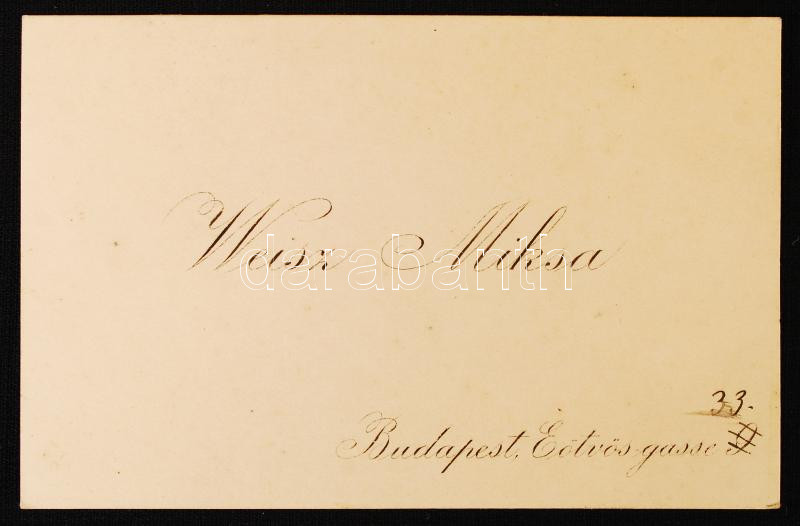 Weisz Miksa
darabanth
33.
Budapest, Eötvös-gasse